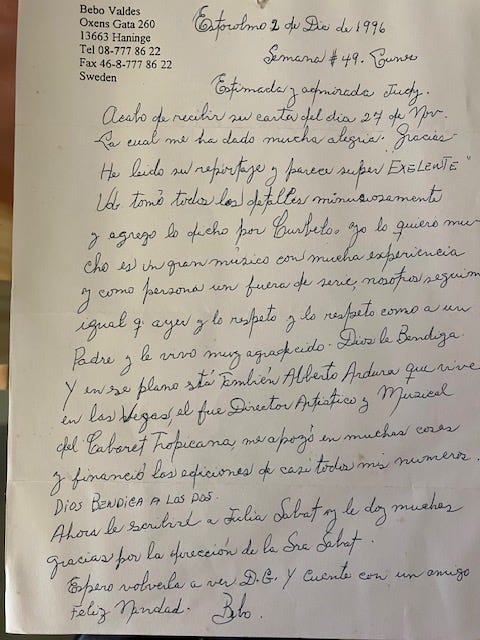 Bebo Valdes
Oxens Gata 260
13663 Haninge
Tel 08-777 86 22
Fax 46-8-777 86 22
Sweden
Estocolmo 2 de Dic de 1996
Semana # 49. Lunes
Estimada y admirada Judy.
Acabo de recibir su carta del dia 27 de Nov.
La cual me ha dado mucha alegria. Gracias-
He leido su reportaze y parece super EXELENTE"
Ud. tomó todos los detalles minusiosamente
y agrego lo dicho por Curbelo, yo lo quiero mu-
cho es un gran músico con mucha experiencia
y como persona un fuera de serie, nosotros seguim
igual q. ayer y lo respeto y lo respeto como a un
Padre y le vivo muy agradecido. Dios le Bendiga.
Y en ese plano stá También Alberto Ardura que vive
en las Vegas el fue Director Artistico y Musical
del Cabaret Tropicana, me apoyó en muchas cosas
y financió las ediciones de casi todos mis numeros.
DIOS BENDICA A LOS DOS.
Ahora le escribiré a Julia Sabat y le doy muchas
gracias por la dirección de la Sra Sabat.
Espero volverla a ver D.G. Y Cuente con un amigo
Feliz Navidad. Bebo.